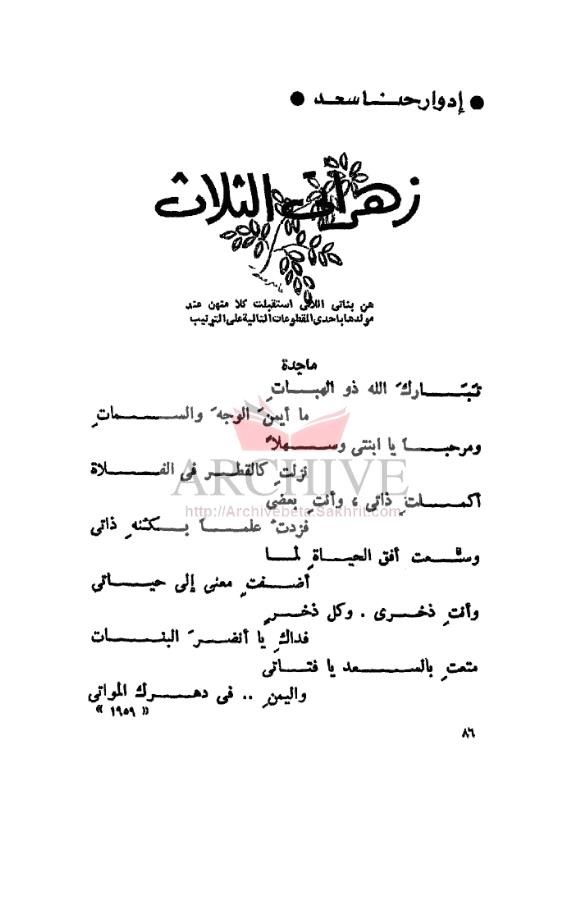 ● إدوار حنا سعد ●
زهراتى الثلاث
هن بناتى اللاتى استقبلت كلا منهن عند
مولدها باحدى المقطوعات التالية على الترتيب
ماجدة
تبَارك الله ذو الهبـاتِ
ما أيمنَ الوجهَ والسمـاتِ
ومرحبـاً يا ابنتى وسـهلاً
نزلتِ كالقطـر فى الفـلاة
أكملـتِ ذاتى ، وأنتِ بعضى
فزدتُ علمـاً بـكنهِ ذاتى
وسَّعت أفق الحيـاةِ لمـا
أضـفتِ معنى إلى حيـاتى
وأنتِ ذخرى . وكل ذخـرٍ
فداكِ يا أنضـرَ البنـات
متعتِ بالسـعد يا فتـاتى
واليمنِ .. فى دهـرك المواتى
« ١٩٥٩ »
٨٦
ARCHIVE
http://Archivebeta.Sakhrit.com